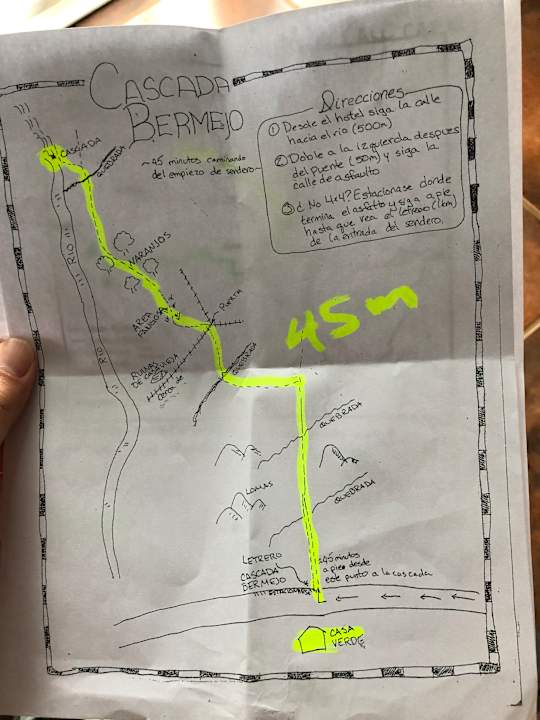 CASCADA
BERMEJO
~45 minutos caminando
del empiezo de sendero~
Direcciones
① Desde el hotel siga la calle
hacia el rio (500m)
② Doble a la izquierda despues
del puente (50m) y siga la
calle de asfaulto
③ ¿No 4x4? Estacionase donde
termina el asfalto y siga a pie
hasta que vea el letrero (1km)
de la entrada del sendero.
CASCADA
QUEBRADA
RIO
NARANJOS
RIO
AREA
PUERTA
45m
RUINAS
QUEBRADA
QUEBRADA
LOMAS
QUEBRADA
LETRERO
CASCADA
BERMEJO
45 minutos
a pie desde
este punto a la cascada
CASA
VERDE